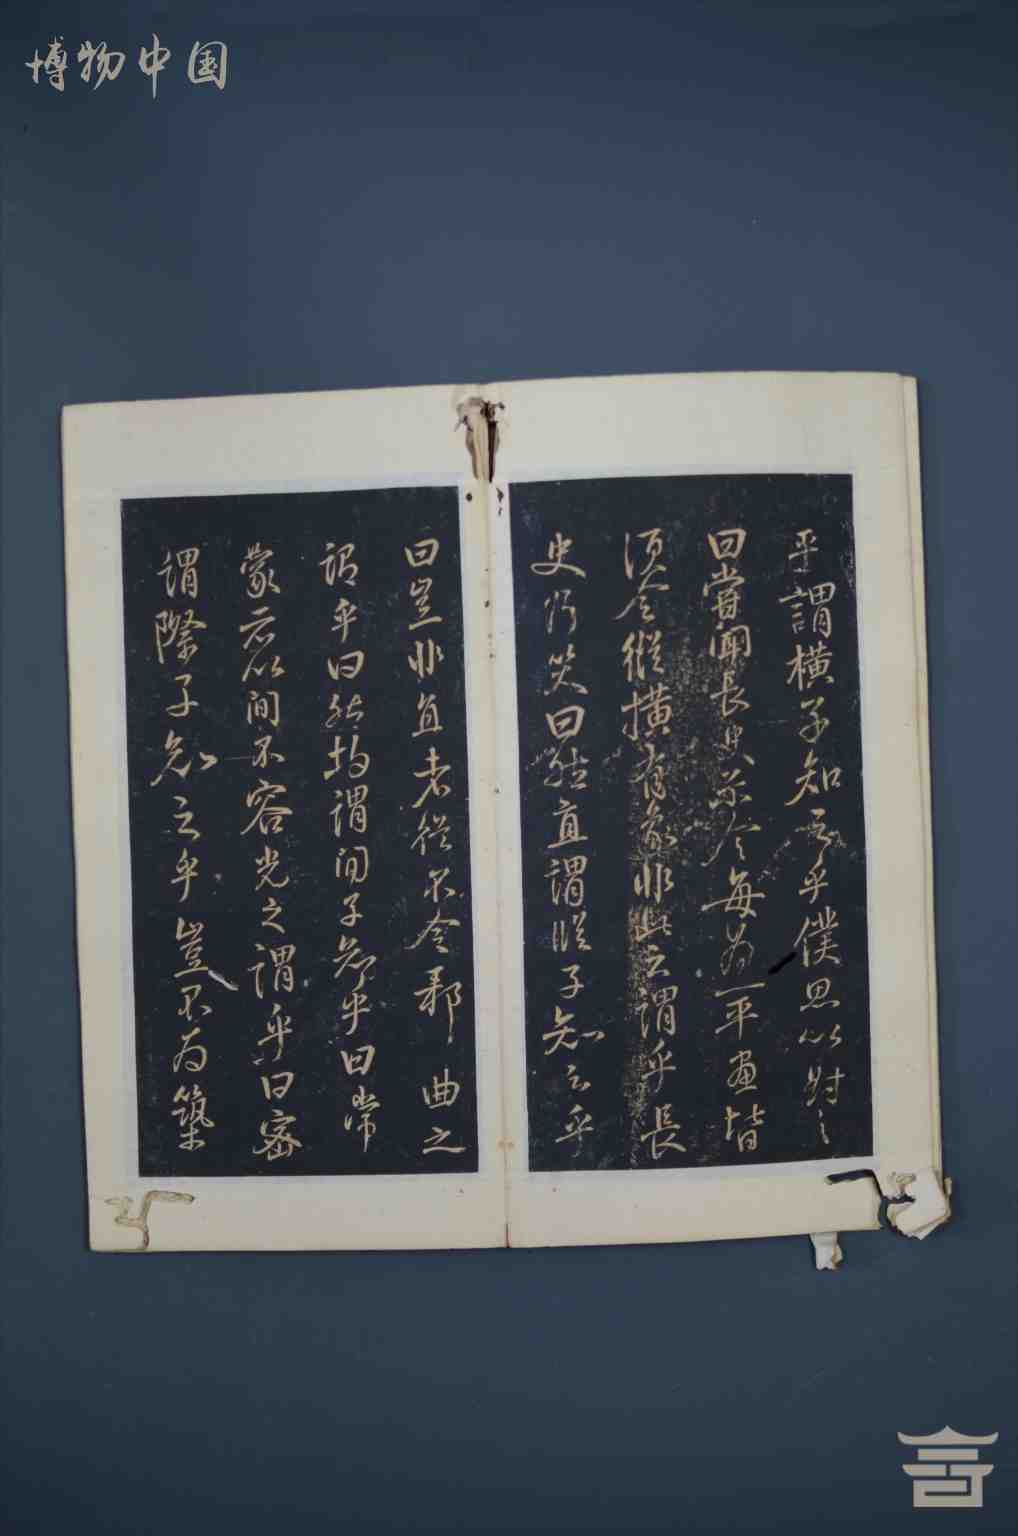 博物中国
平謂橫子知之乎僕思以對之
曰嘗聞長史示令每為一平畫皆
須令縱橫有象非此之謂乎長
史乃笑曰然直謂縱子知之乎
曰豈非直者從不令邪曲之
謂乎曰然均謂間子知乎曰常
蒙示以間不容光之謂乎曰密
謂際子知之乎豈不為築